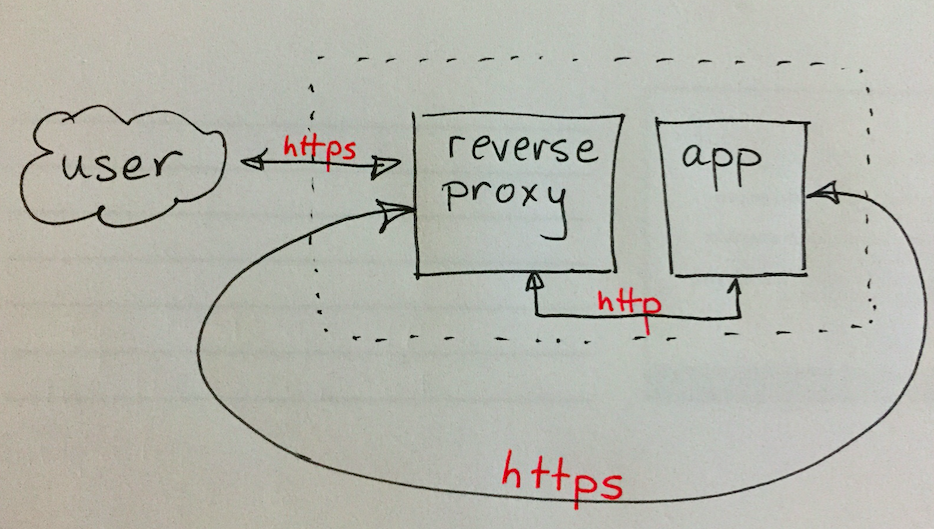 user
https
reverse
proxy
app
http
https